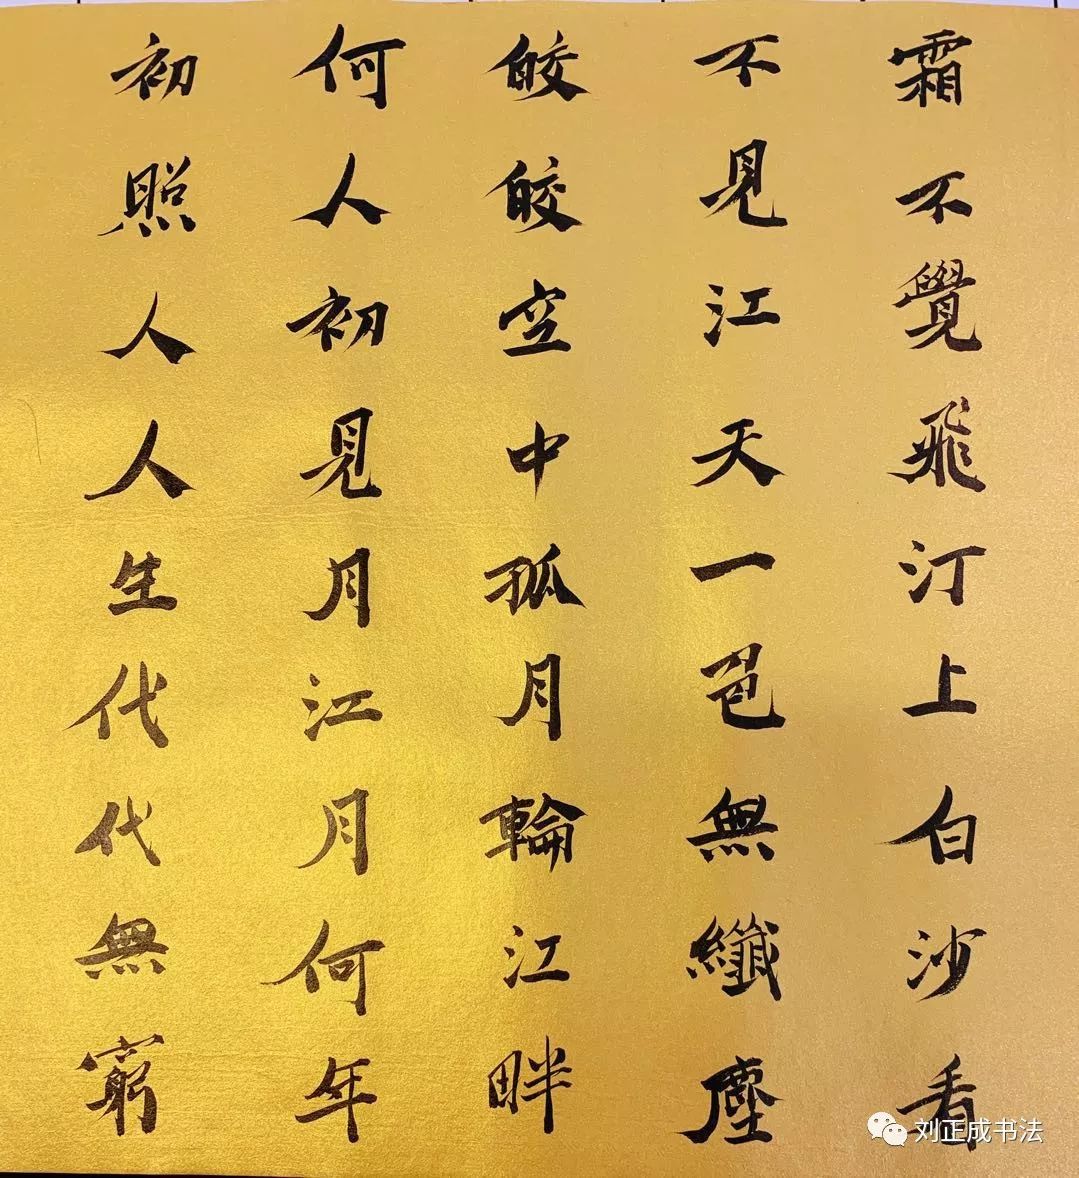 霜不覺飛汀上白沙看
不見江天一色無纖塵
皎皎空中孤月輪江畔
何人初見月江月何年
初照人人生代代無窮
刘正成书法